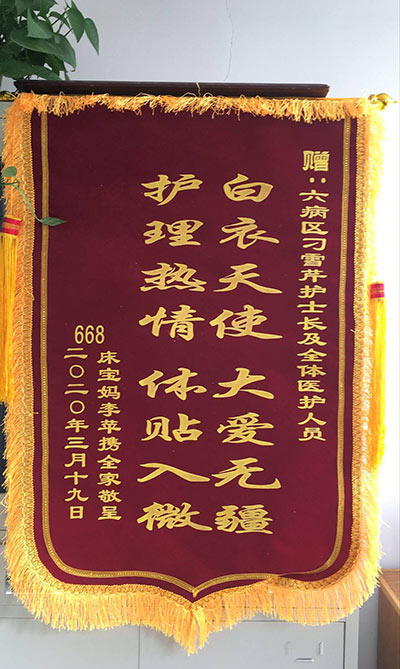 赠：六病区刁雪芹护士长及全体医护人员
白衣天使 大爱无疆
护理热情 体贴入微
668
床宝妈李苹携全家敬呈
二〇二〇年三月十九日